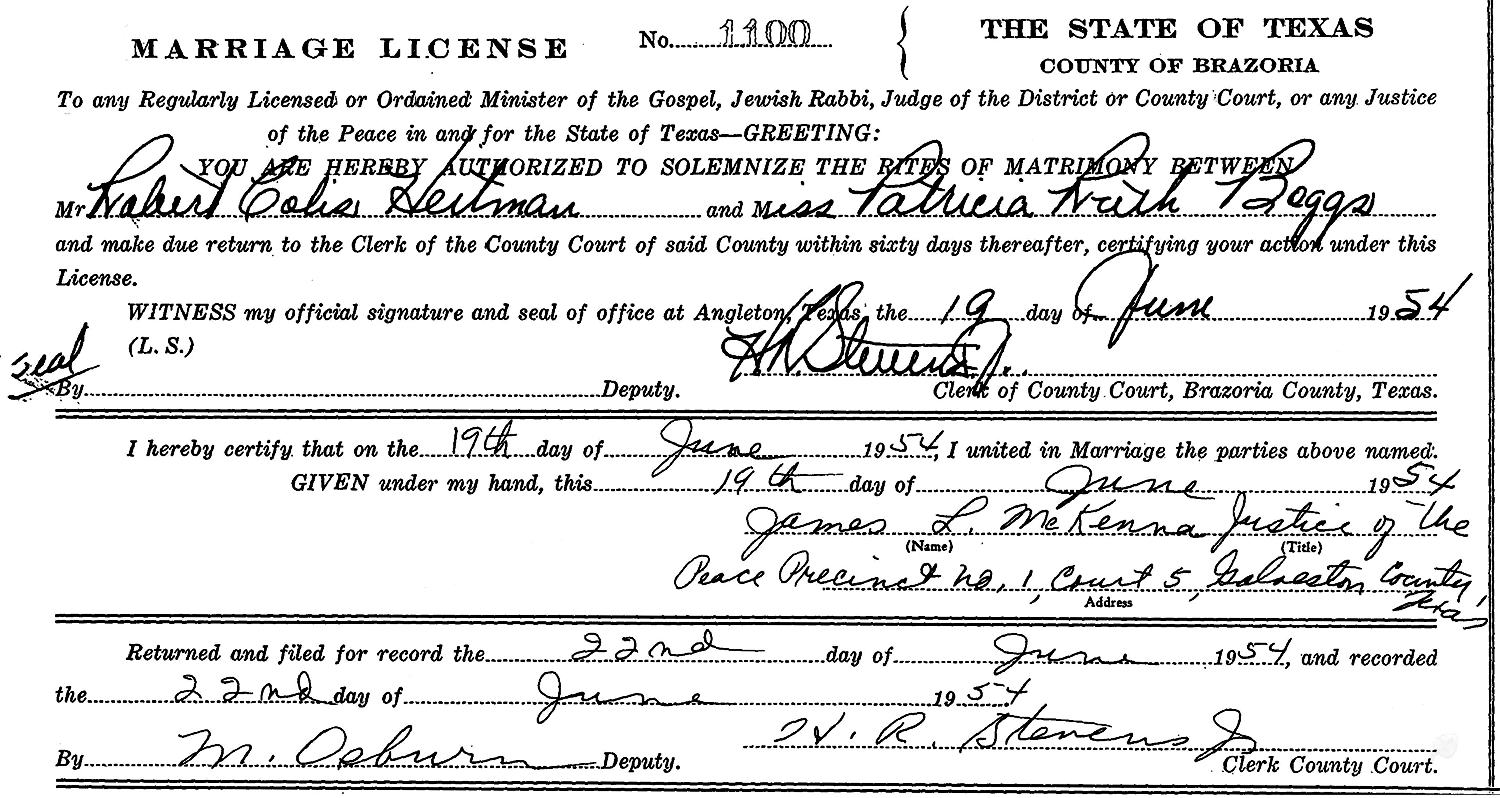 MARRIAGE LICENSE No. 1100 THE STATE OF TEXAS
COUNTY OF BRAZORIA
To any Regularly Licensed or Ordained Minister of the Gospel, Jewish Rabbi, Judge of the District or County Court, or any Justice
of the Peace in and for the State of Texas—GREETING:
YOU ARE HEREBY AUTHORIZED TO SOLEMNIZE THE RITES OF MATRIMONY BETWEEN
Mr Robert Colis Heitman and Miss Patricia Ruth Boggs
and make due return to the Clerk of the County Court of said County within sixty days thereafter, certifying your action under this
License.
WITNESS my official signature and seal of office at Angleton, Texas, the 19 day of June 1954
(L. S.) H R Stevens Jr.
Seal
By Deputy. Clerk of County Court, Brazoria County, Texas.
I hereby certify that on the 19th day of June 1954, I united in Marriage the parties above named.
GIVEN under my hand, this 19th day of June 1954
James L. McKenna Justice of the
(Name) (Title)
Peace Precinct no. 1, Court 5, Galveston County,
Texas
Address
Returned and filed for record the 22nd day of June 1954, and recorded
the 22nd day of June 1954
H. R. Stevens Jr
By M. Osburn Deputy. Clerk County Court.